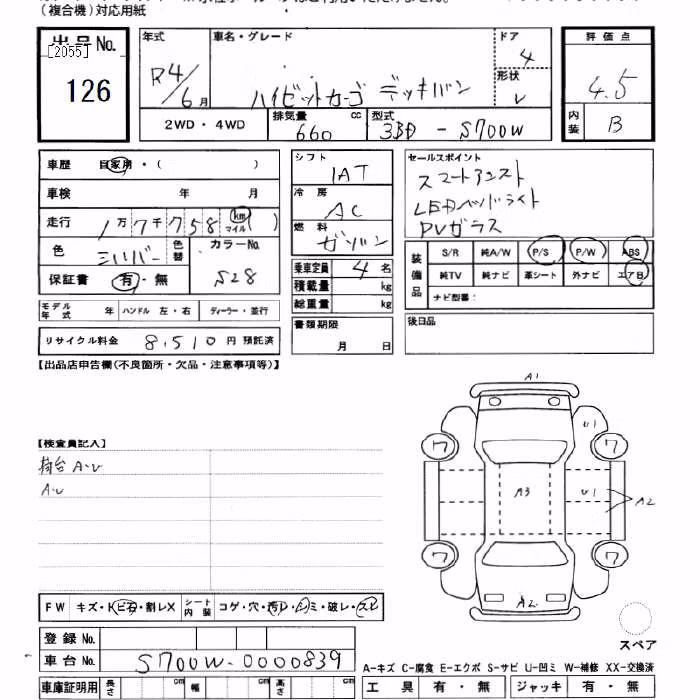 (複合機)対応用紙
出品No.
[2055]
126
年式
R4/6月
車名・グレード
ハイゼットカーゴ デッキバン
ドア
4
形状
V
評価点
4.5
内装
B
2WD・4WD
排気量 660 cc
型式 3BD - S700W
車歴 自家用・( )
車検 年 月
走行 1万7千758 km マイル
色 シルバー 色替
カラーNo. S28
保証書 有・無
モデル年式 年 ハンドル 左・右 ディーラー・並行
リサイクル料金 8,510円 預託済
シフト IAT
冷房 AC
燃料 ガソリン
乗車定員 4 名
積載量 kg
総重量 kg
書類期限
月 日
セールスポイント
スマートアシスト
LEDヘッドライト
PVガラス
装備品
S/R 純A/W P/S P/W ABS
純TV 純ナビ 革シート 外ナビ エアB
ナビ型番:
後日品
【出品店申告欄(不良箇所・欠品・注意事項等)】
【検査員記入】
荷台 A・U
A・U
A1
U1
ワ ワ
A3
U1
A2
ワ ワ
A2
スペア
FW キズ・ヒビ・割レX シート内装 コゲ・穴・汚レ・シミ・破レ・スレ
登録No.
車台No. S700W-0000839
車庫証明用 長さ cm 幅 cm 高さ cm
A-キズ C-腐食 E-エクボ S-サビ U-凹ミ W-補修 XX-交換済
工具 有・無 ジャッキ 有・無